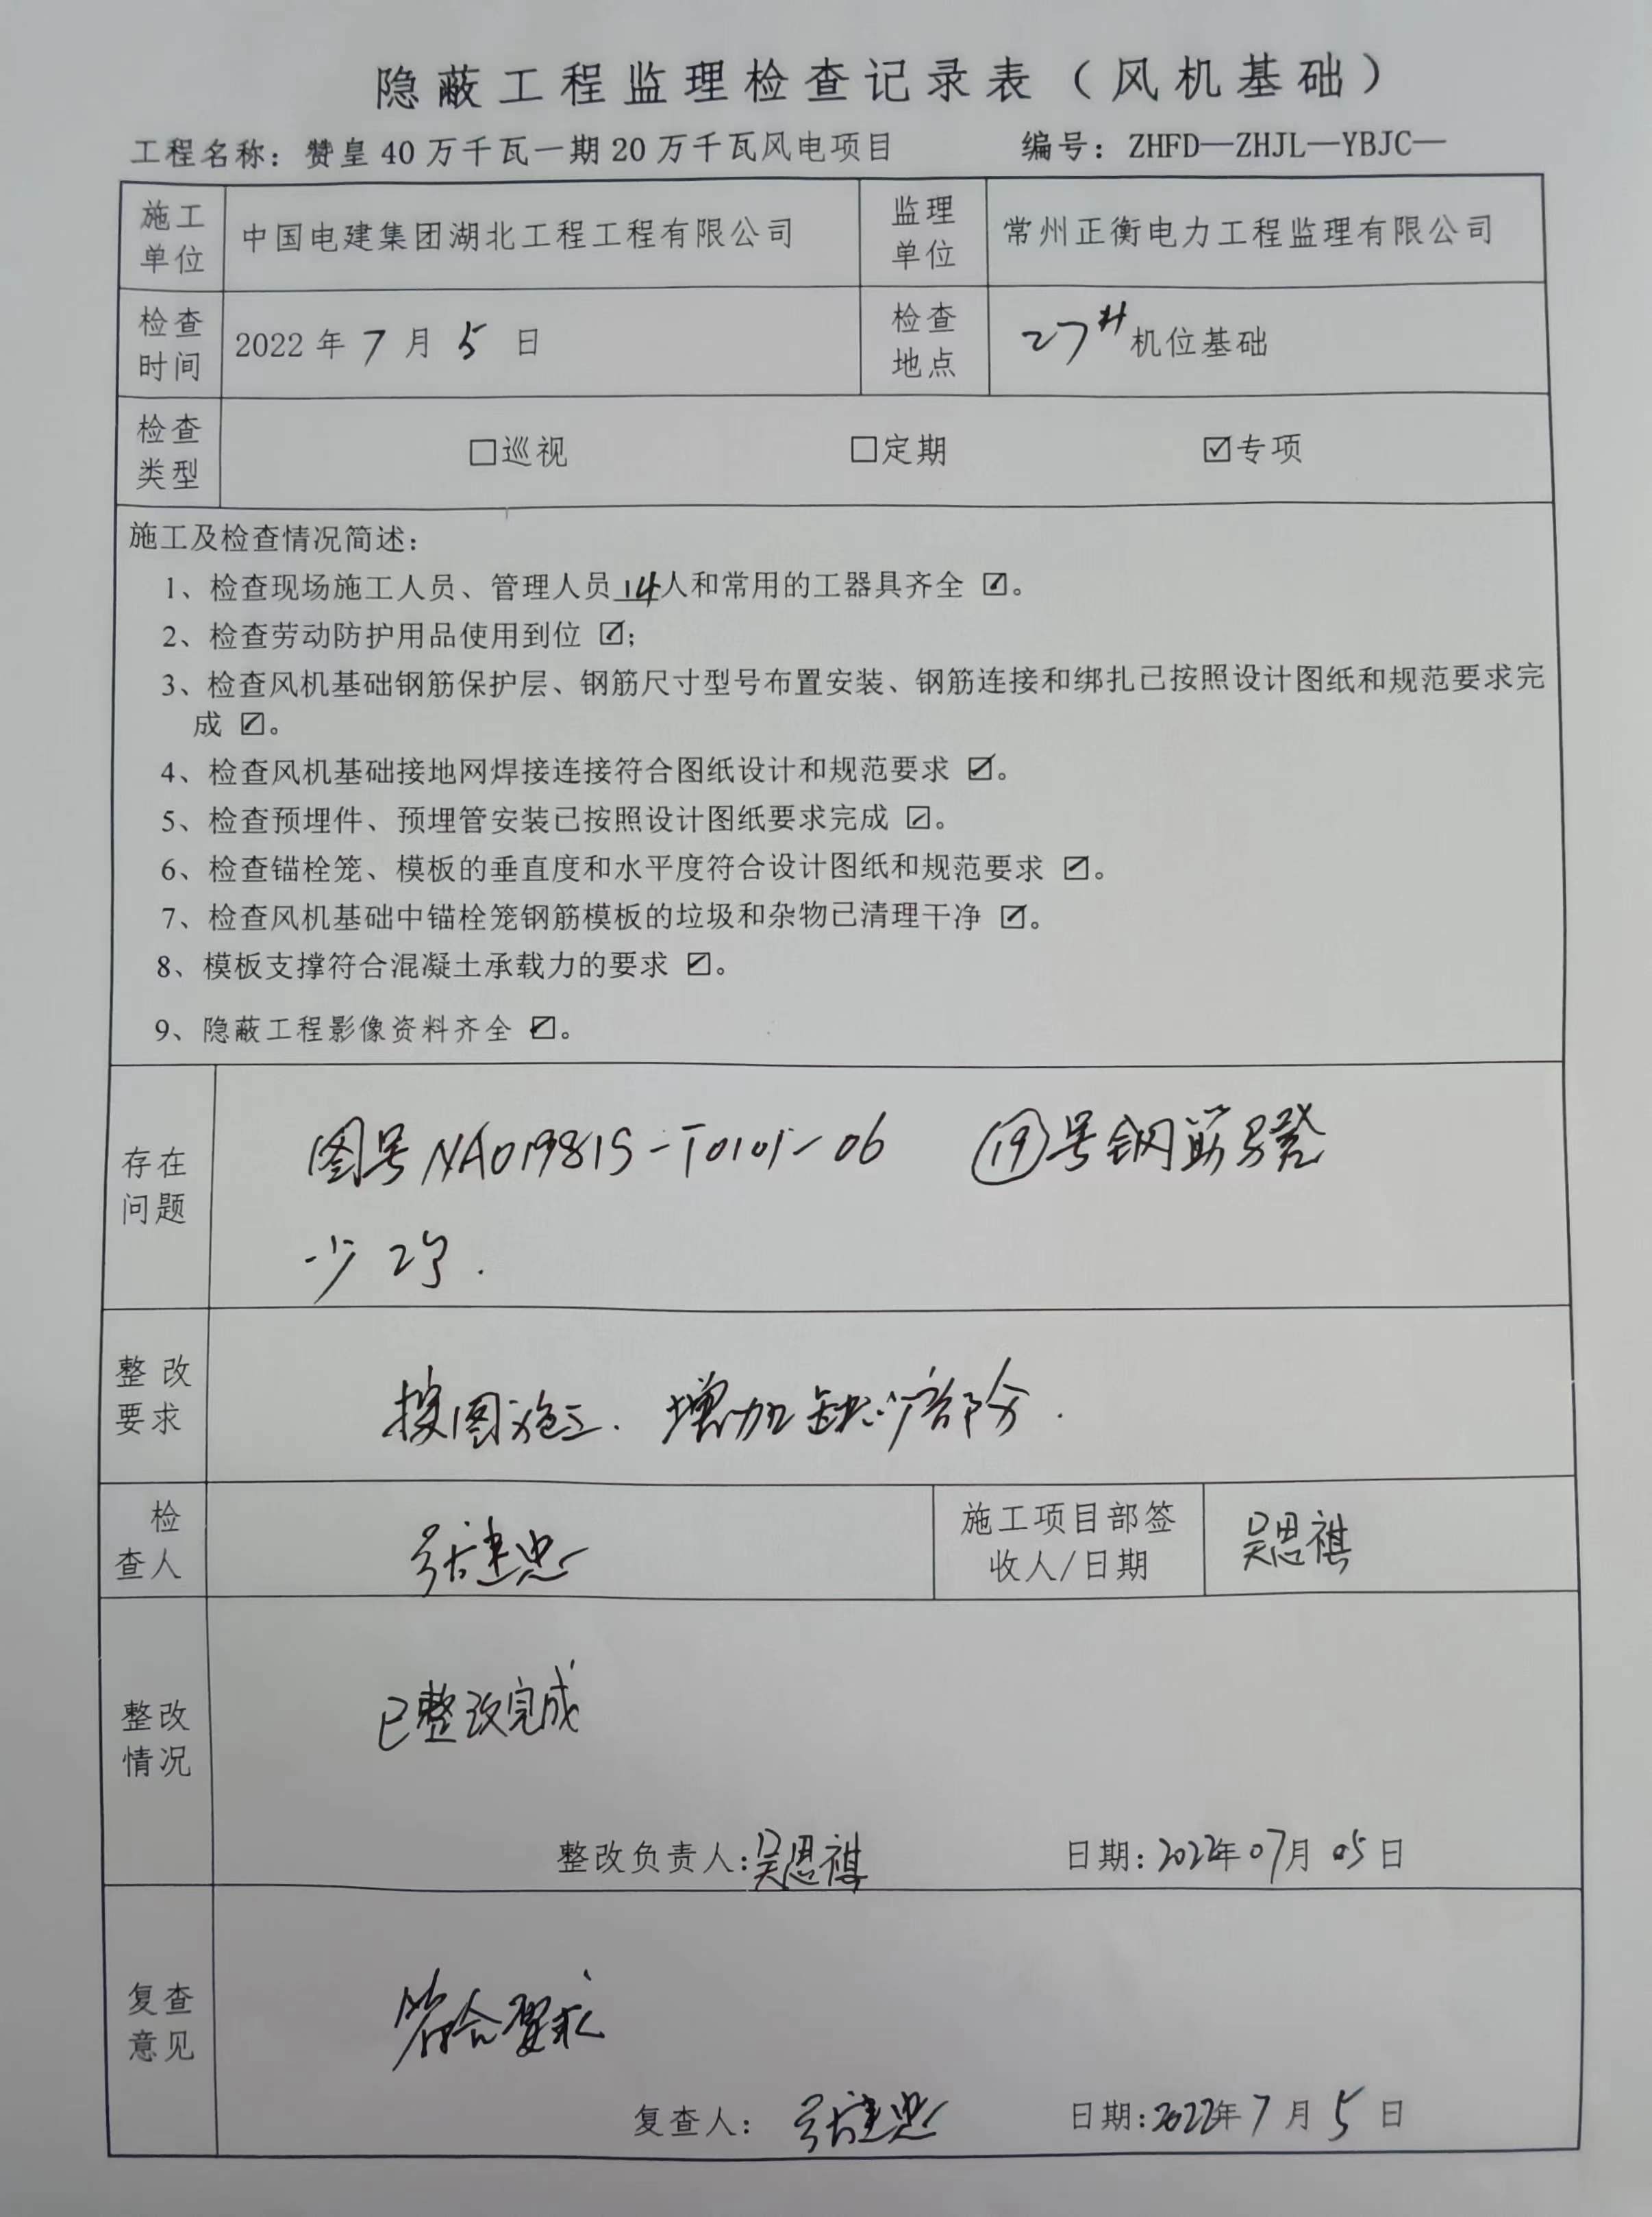 隐蔽工程监理检查记录表（风机基础）
工程名称：赞皇40万千瓦一期20万千瓦风电项目 编号：ZHFD—ZHJL—YBJC—
施工单位 中国电建集团湖北工程工程有限公司 监理单位 常州正衡电力工程监理有限公司
检查时间 2022年7月5日 检查地点 27#机位基础
检查类型 □巡视 □定期 ☑专项
施工及检查情况简述：
1、检查现场施工人员、管理人员14人和常用的工器具齐全 ☑。
2、检查劳动防护用品使用到位 ☑；
3、检查风机基础钢筋保护层、钢筋尺寸型号布置安装、钢筋连接和绑扎已按照设计图纸和规范要求完
成 ☑。
4、检查风机基础接地网焊接连接符合图纸设计和规范要求 ☑。
5、检查预埋件、预埋管安装已按照设计图纸要求完成 ☑。
6、检查锚栓笼、模板的垂直度和水平度符合设计图纸和规范要求 ☑。
7、检查风机基础中锚栓笼钢筋模板的垃圾和杂物已清理干净 ☑。
8、模板支撑符合混凝土承载力的要求 ☑。
9、隐蔽工程影像资料齐全 ☑。
存在问题 图号NA01981S-T0101-06 ⑲号钢筋
少2
整改要求 按图施工. 增加缺少部分.
检查人 张建忠 施工项目部签收人/日期 吴思祺
整改情况 已整改完成
整改负责人：吴思祺 日期：2022年07月05日
复查意见 符合要求
复查人： 张建忠 日期：2022年7月5日